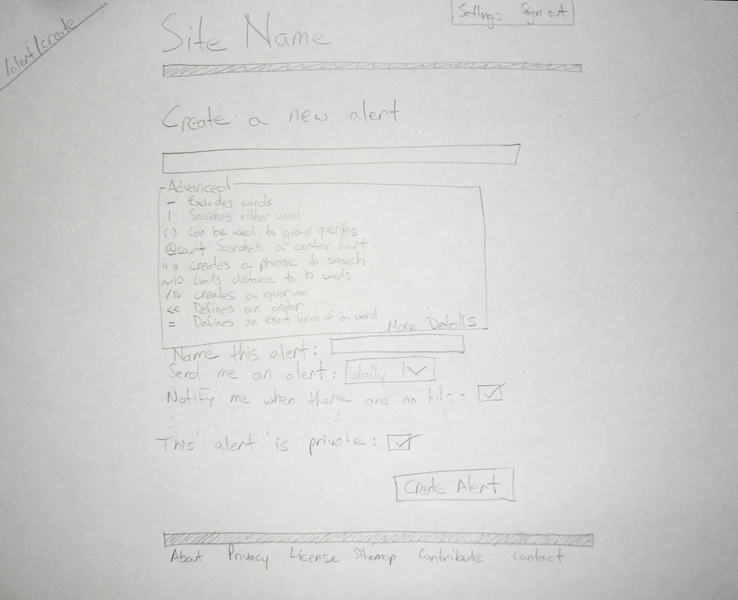 /alert/create
Settings Sign out
Site Name
Create a new alert
Advanced
- Excludes words
| Searches either word
( ) Can be used to group queries
@court Searches a certain court
" " Creates a phrase to search
~10 Limits distance to 10 words
/10 Creates a quorum
<< Defines an order
= Defines an exact form of a word
More Details
Name this alert:
Send me an alert: daily
Notify me when there are no hits:
This alert is private:
Create Alert
About Privacy License Sitemap Contribute Contact